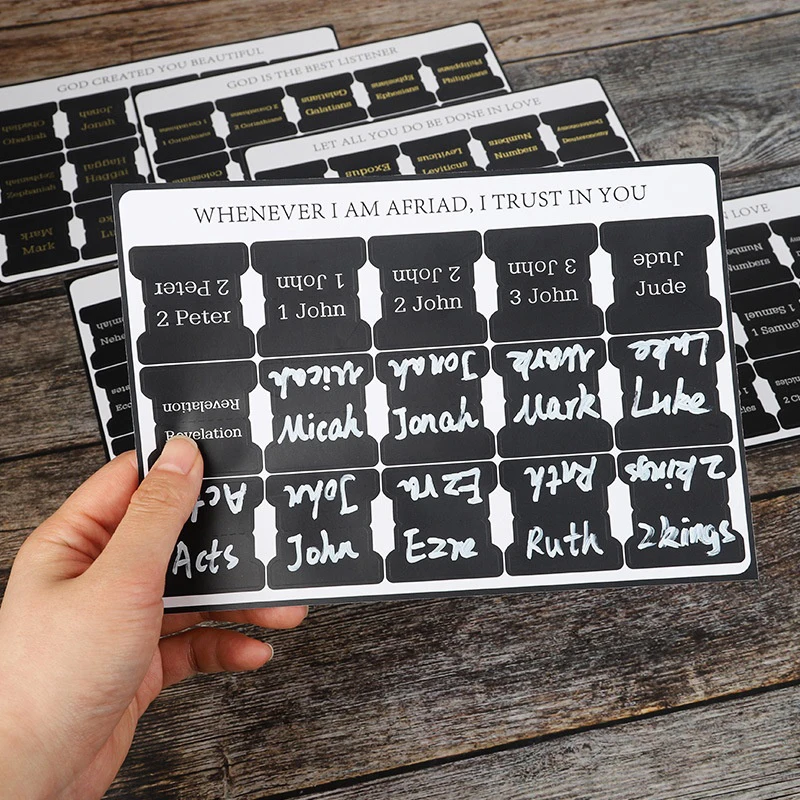 GOD CREATED YOU BEAUTIFUL
Obadiah
Jonah
Obadiah
Jonah
Zephaniah
Haggai
Zephaniah
Haggai
Mark
Mark
GOD IS THE BEST LISTENER
1 Corinthians
2 Corinthians
Galatians
Ephesians
Philippians
1 Corinthians
2 Corinthians
Galatians
Ephesians
Philippians
Colossians
LET ALL YOU DO BE DONE IN LOVE
Exodus
Leviticus
Numbers
Deuteronomy
Leviticus
Numbers
Deuteronomy
WHENEVER I AM AFRIAD, I TRUST IN YOU
2 Peter
1 John
2 John
3 John
Jude
2 Peter
1 John
2 John
3 John
Jude
Revelation
Micah
Jonah
Mark
Luke
Revelation
Micah
Jonah
Mark
Luke
Acts
John
Ezra
Ruth
2 kings
Acts
John
Ezre
Ruth
2 kings
N LOVE
Numbers
Numbers
1 Samuel
1 Samuel